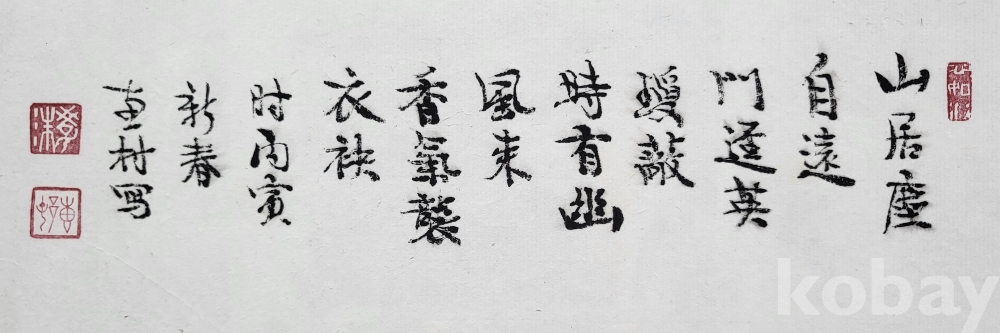 山居塵
自遠
門英
敲
時有幽
風来
香氣襲
衣袂
时丙寅
新春
村写
kobay